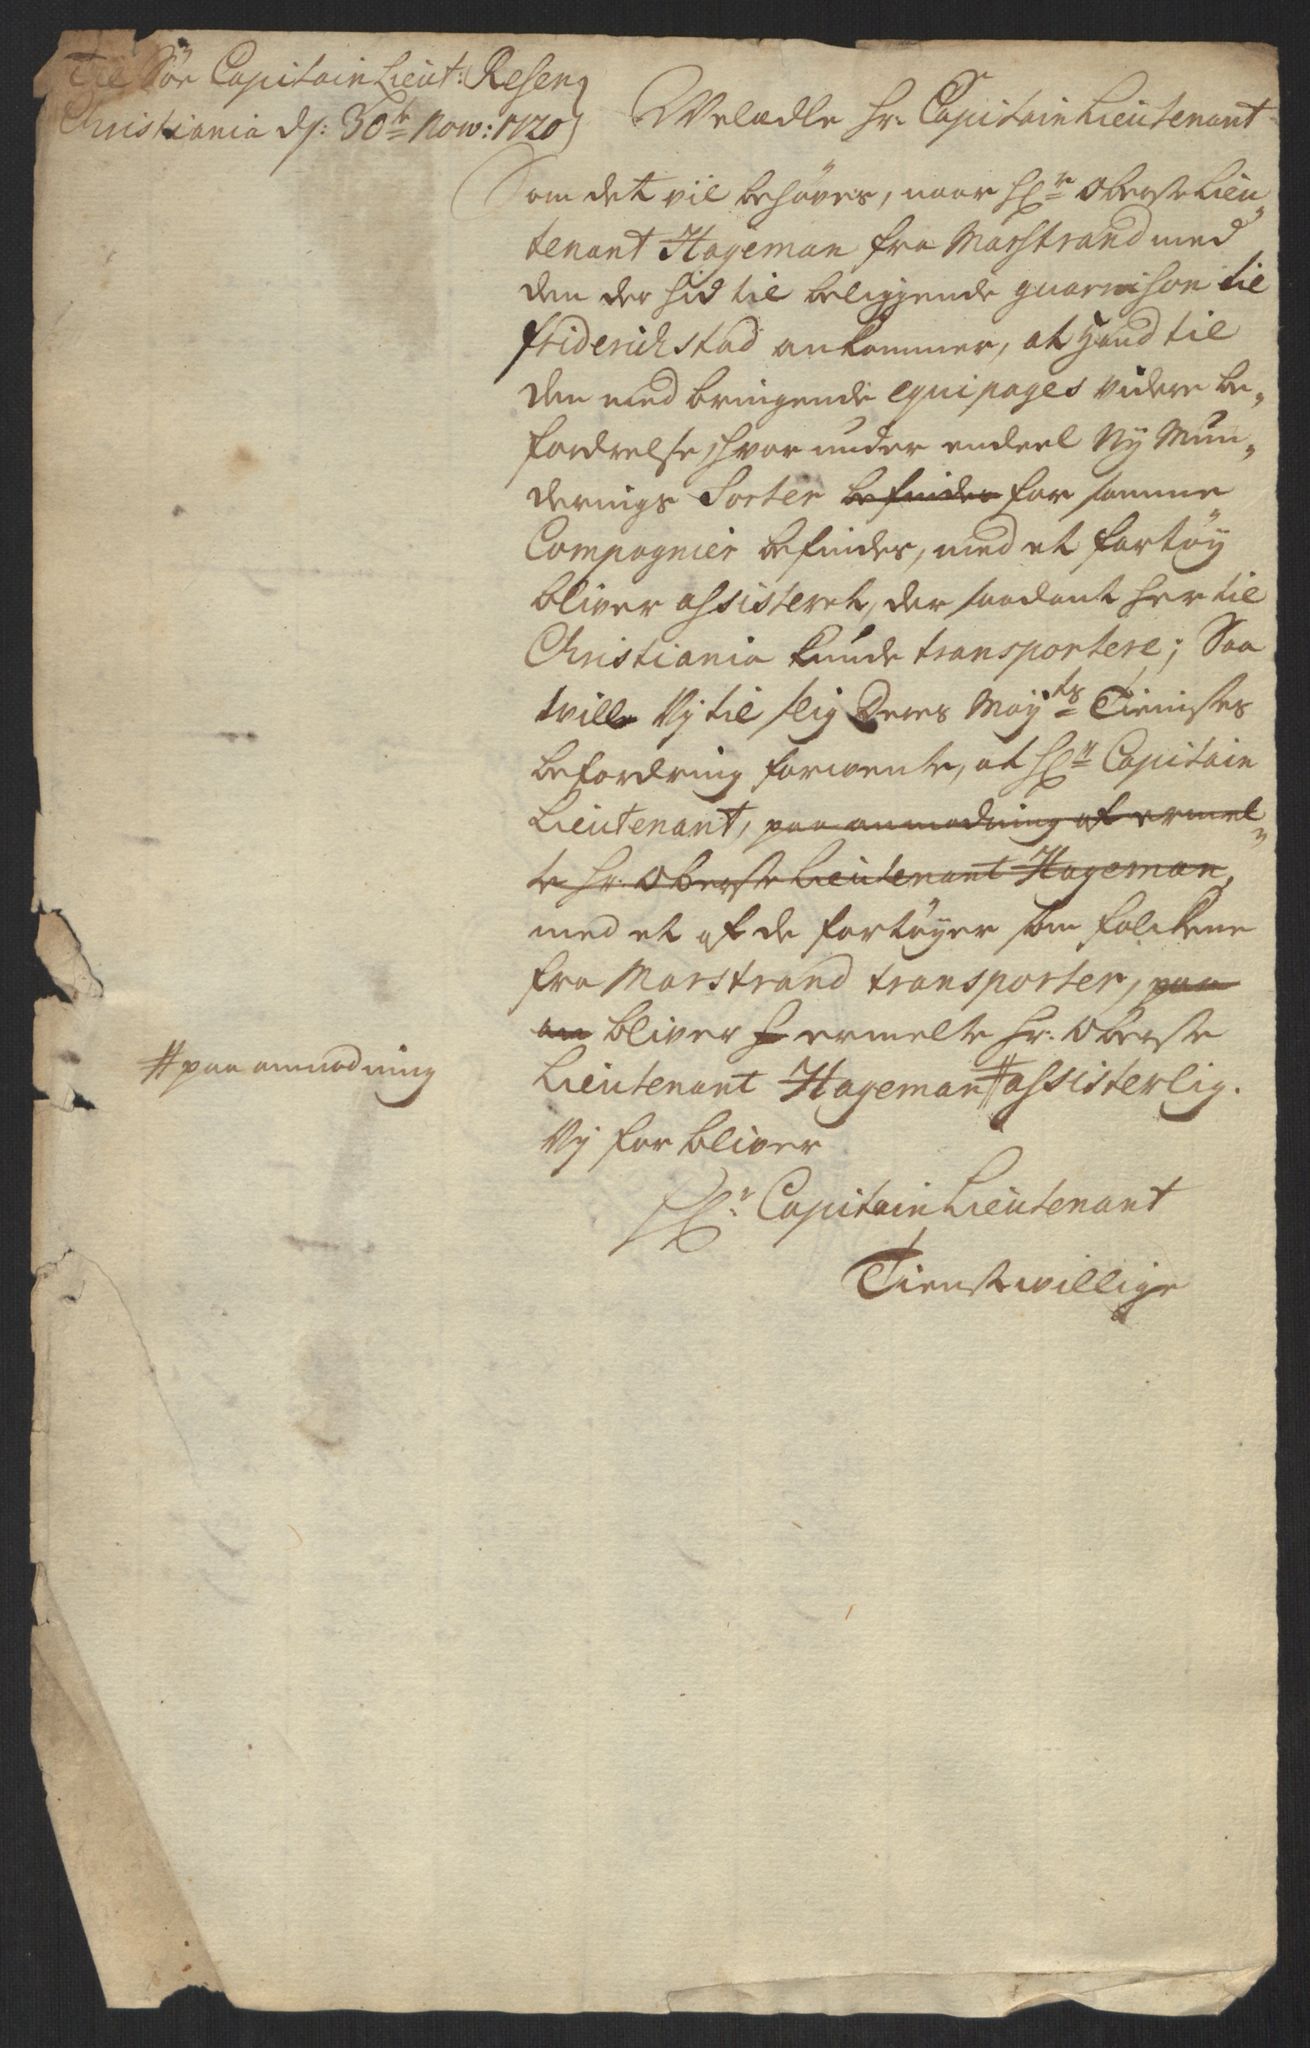 Til Söe Capitain Lieut: Resen
Christiania d: 30te Now: 1720
Welædle Hr. Capitain Lieutenant
Som det vil behöves, naar Hr. Oberste Lieu„
tenant Hageman fra Marstrand med
den der hid til beliggende guarnison til
Friderichstad ankommer, at hand til
den med bringende equipages videre be„
fordrelse, hvor under endeel Ny Mun„
derings Sorter befindes for samme
Compagnier befindes, med et fartöy
bliver assisteret, der saadant her til
Christiania kunde transportere; Saa
wille Vj til slig Deres Mayts Tienistes
befordring forwente, at Hr. Capitain
Lieutenant, paa anmodning af ermel„
te Hr. Oberste Lieutenant Hageman,
med et af de fartöyer som folckene
fra Marstrand transporter, paa
an bliver H ermelte Hr. Oberste
Lieutenant Hageman # assisterlig.
# paa anmodning
Vj forbliver
Hr. Capitain Lieutenant
Tienstwillige